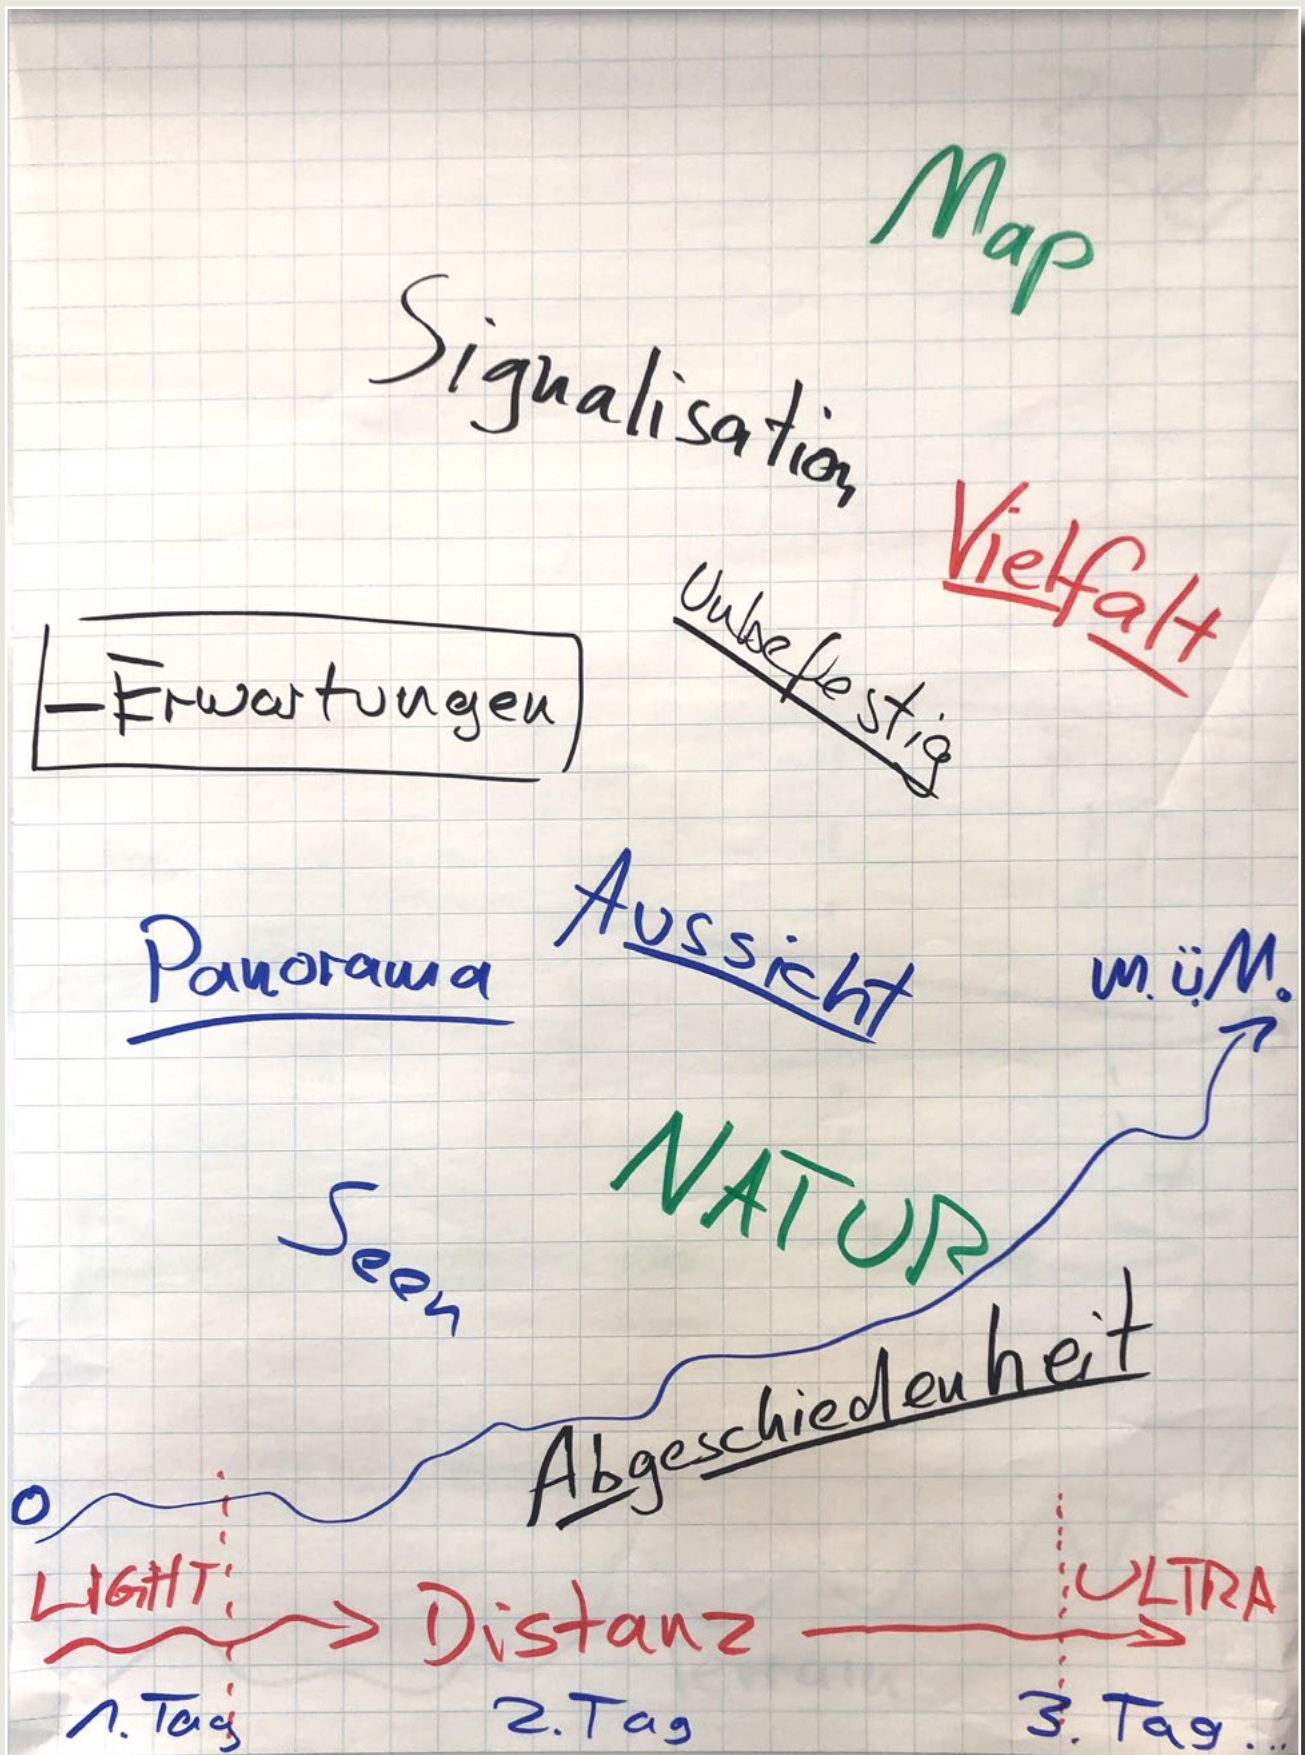 Map
Signalisation
Vielfalt
Unbefestig
– Erwartungen
Aussicht
Panorama
m.ü.M.
NATUR
Seen
Abgeschiedenheit
0
LIGHT
Distanz
ULTRA
1. Tag
2. Tag
3. Tag...